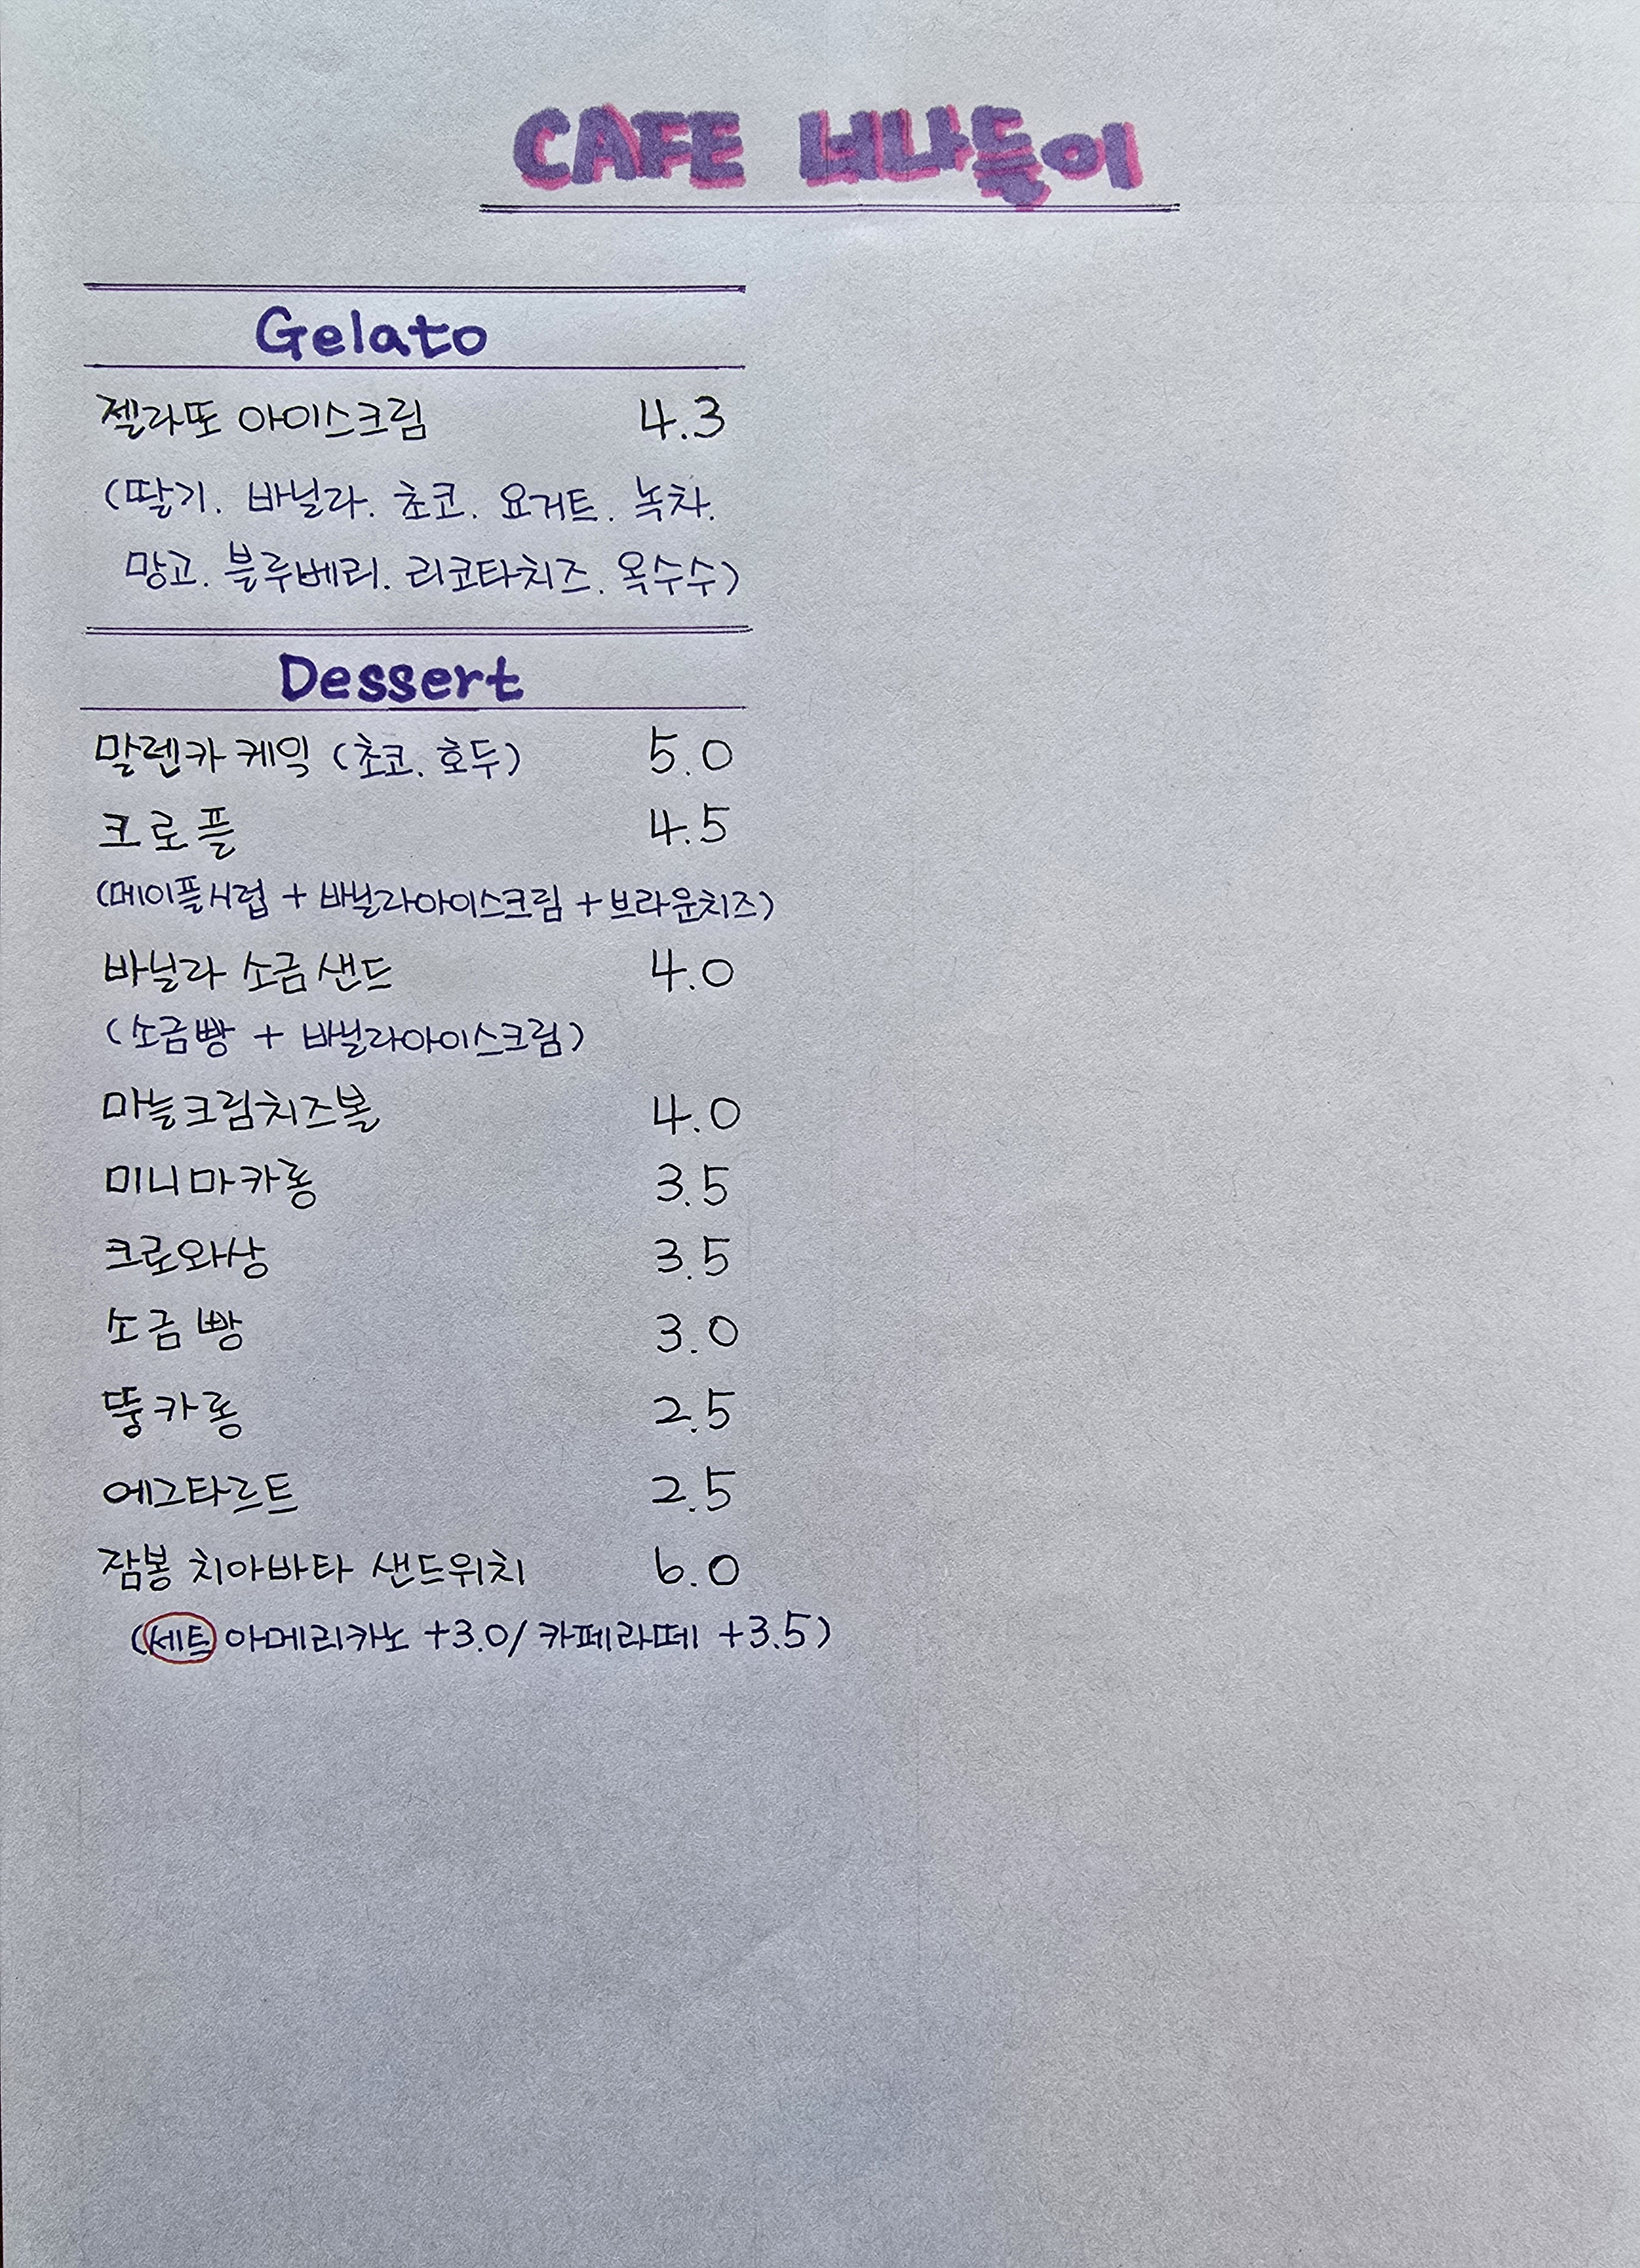 CAFE 너나들이
Gelato
젤라또 아이스크림 4.3
(딸기. 바닐라. 초코. 요거트. 녹차.
망고. 블루베리. 리코타치즈. 옥수수)
Dessert
말렌카 케익 (초코. 호두) 5.0
크로플 4.5
(메이플시럽 + 바닐라아이스크림 + 브라운치즈)
바닐라 소금샌드 4.0
(소금빵 + 바닐라아이스크림)
마늘크림치즈볼 4.0
미니마카롱 3.5
크로와상 3.5
소금빵 3.0
뚱카롱 2.5
에그타르트 2.5
잠봉 치아바타 샌드위치 6.0
(세트 아메리카노 +3.0/ 카페라떼 +3.5)